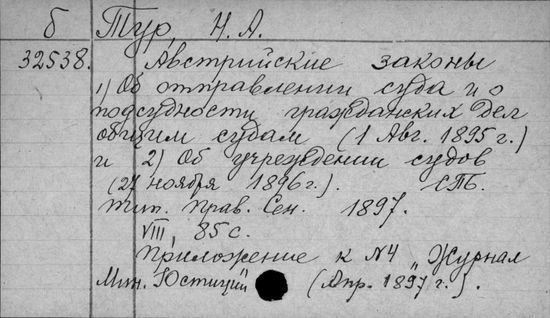 б Тур, Н. А.
32538. Австрийские законы
1) Об отправлении суда и о
подсудности гражданских дел
общим судам (1 Авг. 1895 г.)
и 2) Об учреждении судов
(27 ноября 1896 г.). СПБ.
тип. Прав. Сен. 1897.
VIII, 85 с.
Приложение к №4 „Журнал
Мин. Юстиции" (Апр. 1897 г.).